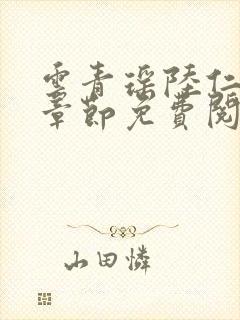 雲青瑶陸仁
章節免費閱
山田憐